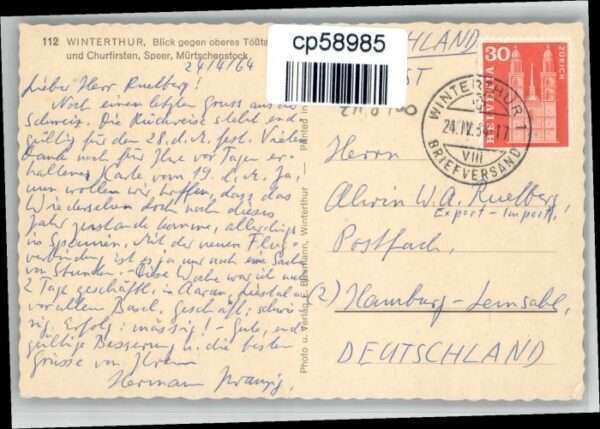 112 WINTERTHUR, Blick gegen oberes Tößta
und Churfirsten, Speer, Mürtschenstock
24/4/64
Lieber Herr Ruelberg!
Noch einen letzten Gruss aus der
Schweiz. Die Rückreise steht end-
gültig für den 28. d. M. fest. Vielen
Dank noch für Ihre vor Tagen er-
haltene Karte vom 19. d. M. Ja,
nun wollen wir hoffen, dass das
Wiedersehen doch noch dieses
Jahr zustande komme, allerdings
in Spanien. Mit der neuen Flug-
verbindung ist es ja nur noch eine Sache
von Stunden. Diese Woche war ich auch
2 Tage geschäftl. in Aarau, Liestal u.
vor allem Basel. Geschäft: schwie-
rig. Erfolg: mässig! - Gute, end-
gültige Besserung u. die besten
Grüsse von Ihrem
Hermann
Photo u. Verlag Winterthur
Printed in
cp58985
CHLAND
ST
30
HELVETIA
ZÜRICH
WINTERTHUR 1
24.IV.64-17
VIII
BRIEFVERSAND
Herrn
Alwin W.A. Ruelberg,
Export-Import,
Postfach,
(2) Hamburg-Lemsahl,
DEUTSCHLAND